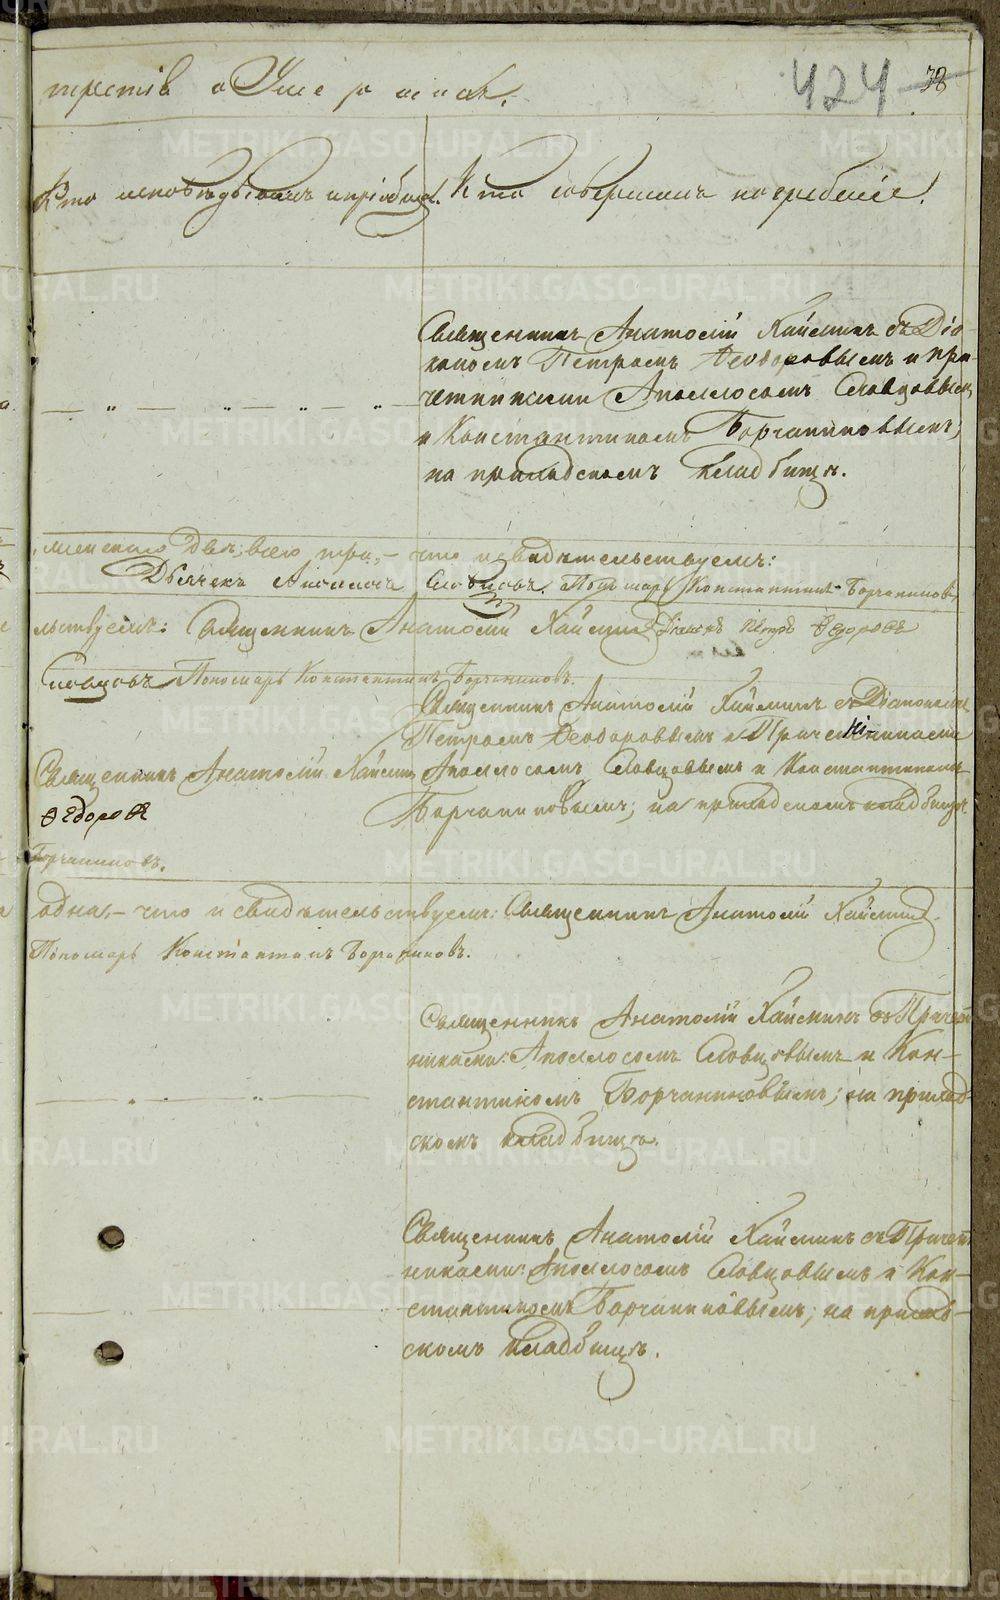 третія о Умершихъ.
424 38
Кто исповѣдывалъ и пріобщ. Кто совершилъ погребеніе.
Священникъ Анатолій Хайминъ съ Діа-
кономъ Петромъ Ѳеодоровымъ и при-
четниками Аполлосомъ Словцовымъ
и Константиномъ Борчаниновымъ;
на приходскомъ кладбищѣ.
женскаго двѣ; всего три, – что и свидѣтельствуемъ:
Дьячекъ Аполлосъ Словцовъ. Пономарь Константинъ Борчаниновъ
льствуемъ: Священникъ Анатолій Хайминъ Діаконъ Петръ Ѳедоровъ
Словцовъ Пономарь Константинъ Борчаниновъ.
Священникъ Анатолій Хайминъ съ Діакономъ
Петромъ Ѳеодоровымъ и Причетниками
Священникъ Анатолій Хайминъ Аполлосомъ Словцовымъ и Константиномъ
Ѳедоровъ Борчаниновымъ; на приходскомъ кладбищѣ
Борчаниновъ.
одна, – что и свидѣтельствуемъ: Священникъ Анатолій Хайминъ.
Пономарь Константинъ Борчаниновъ.
Священникъ Анатолій Хайминъ съ Причет-
никами: Аполлосомъ Словцовымъ и Кон-
стантиномъ Борчаниновымъ; на приход-
скомъ кладбищѣ.
Священникъ Анатолій Хайминъ съ Причет-
никами: Аполлосомъ Словцовымъ и Кон-
стантиномъ Борчаниновымъ; на приход-
скомъ кладбищѣ.
METRIKI.GASO-URAL.RU